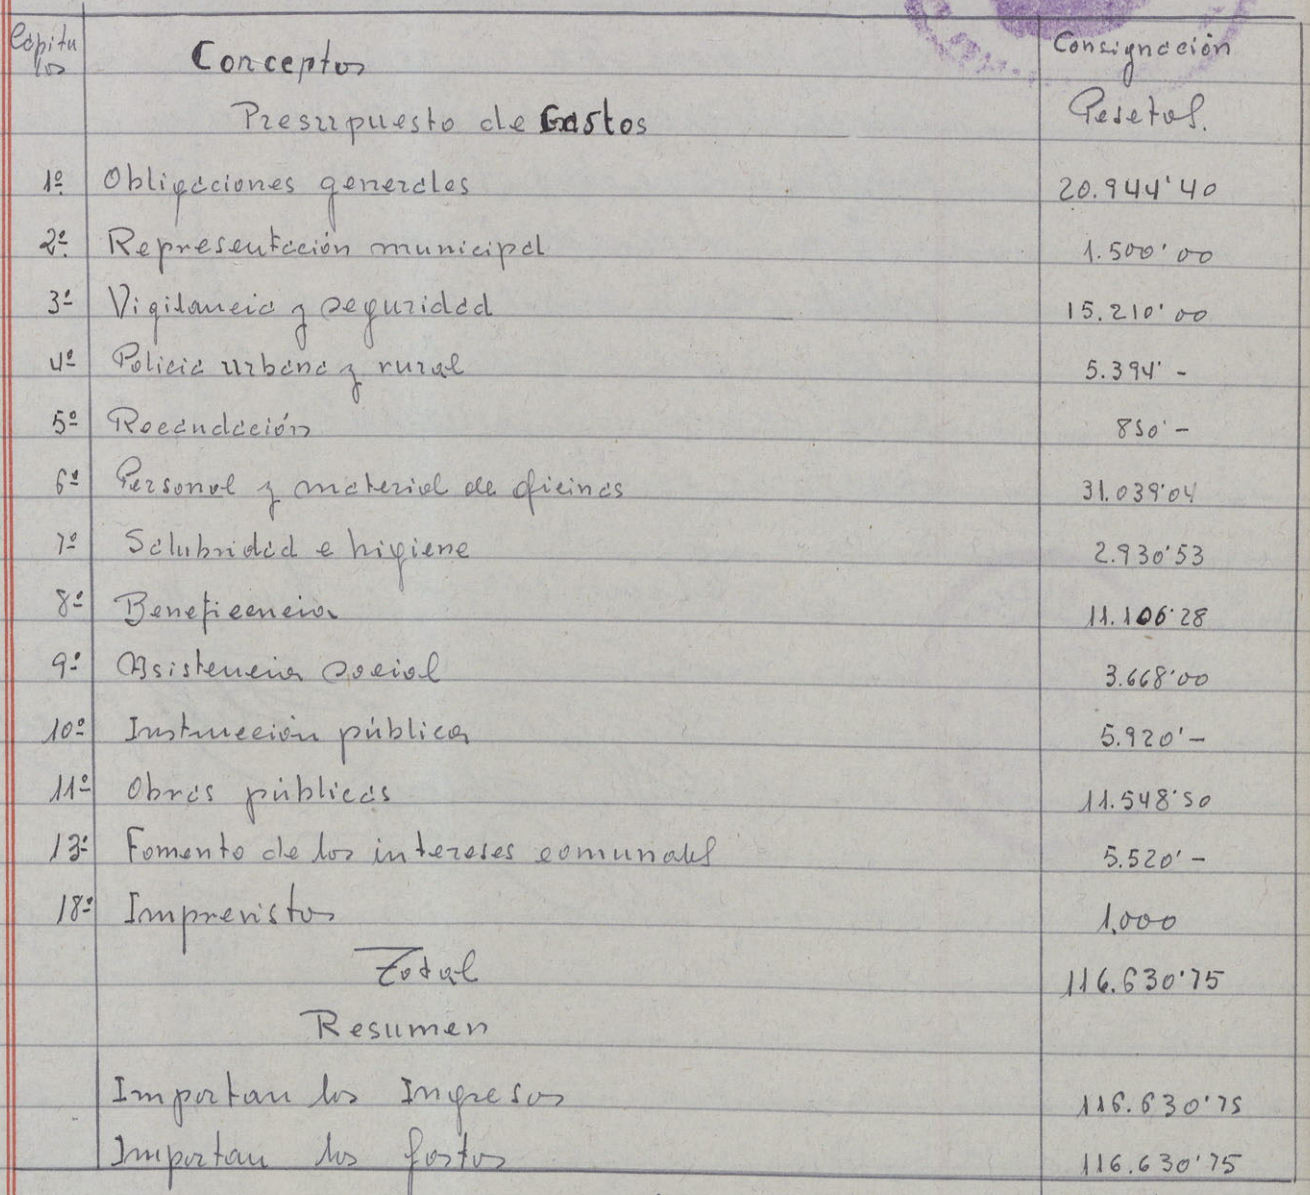 Capitu Conceptos Consignación
los
Presupuesto de Gastos Pesetas.
1º Obligaciones generales 20.944'40
2º Representación municipal 1.500'00
3º Vigilancia y seguridad 15.210'00
4º Policia urbana y rural 5.394'-
5º Recaudación 850'-
6º Personal y material de oficinas 31.039'04
7º Salubridad e higiene 2.930'53
8º Beneficencia 11.106'28
9º Asistencia social 3.668'00
10º Instrucción pública 5.920'-
11º Obras públicas 11.548'50
13º Fomento de los intereses comunales 5.520'-
18º Imprevistos 1,000
Total 116.630'75
Resumen
Importan los Ingresos 116.630'75
Importan los gastos 116.630'75